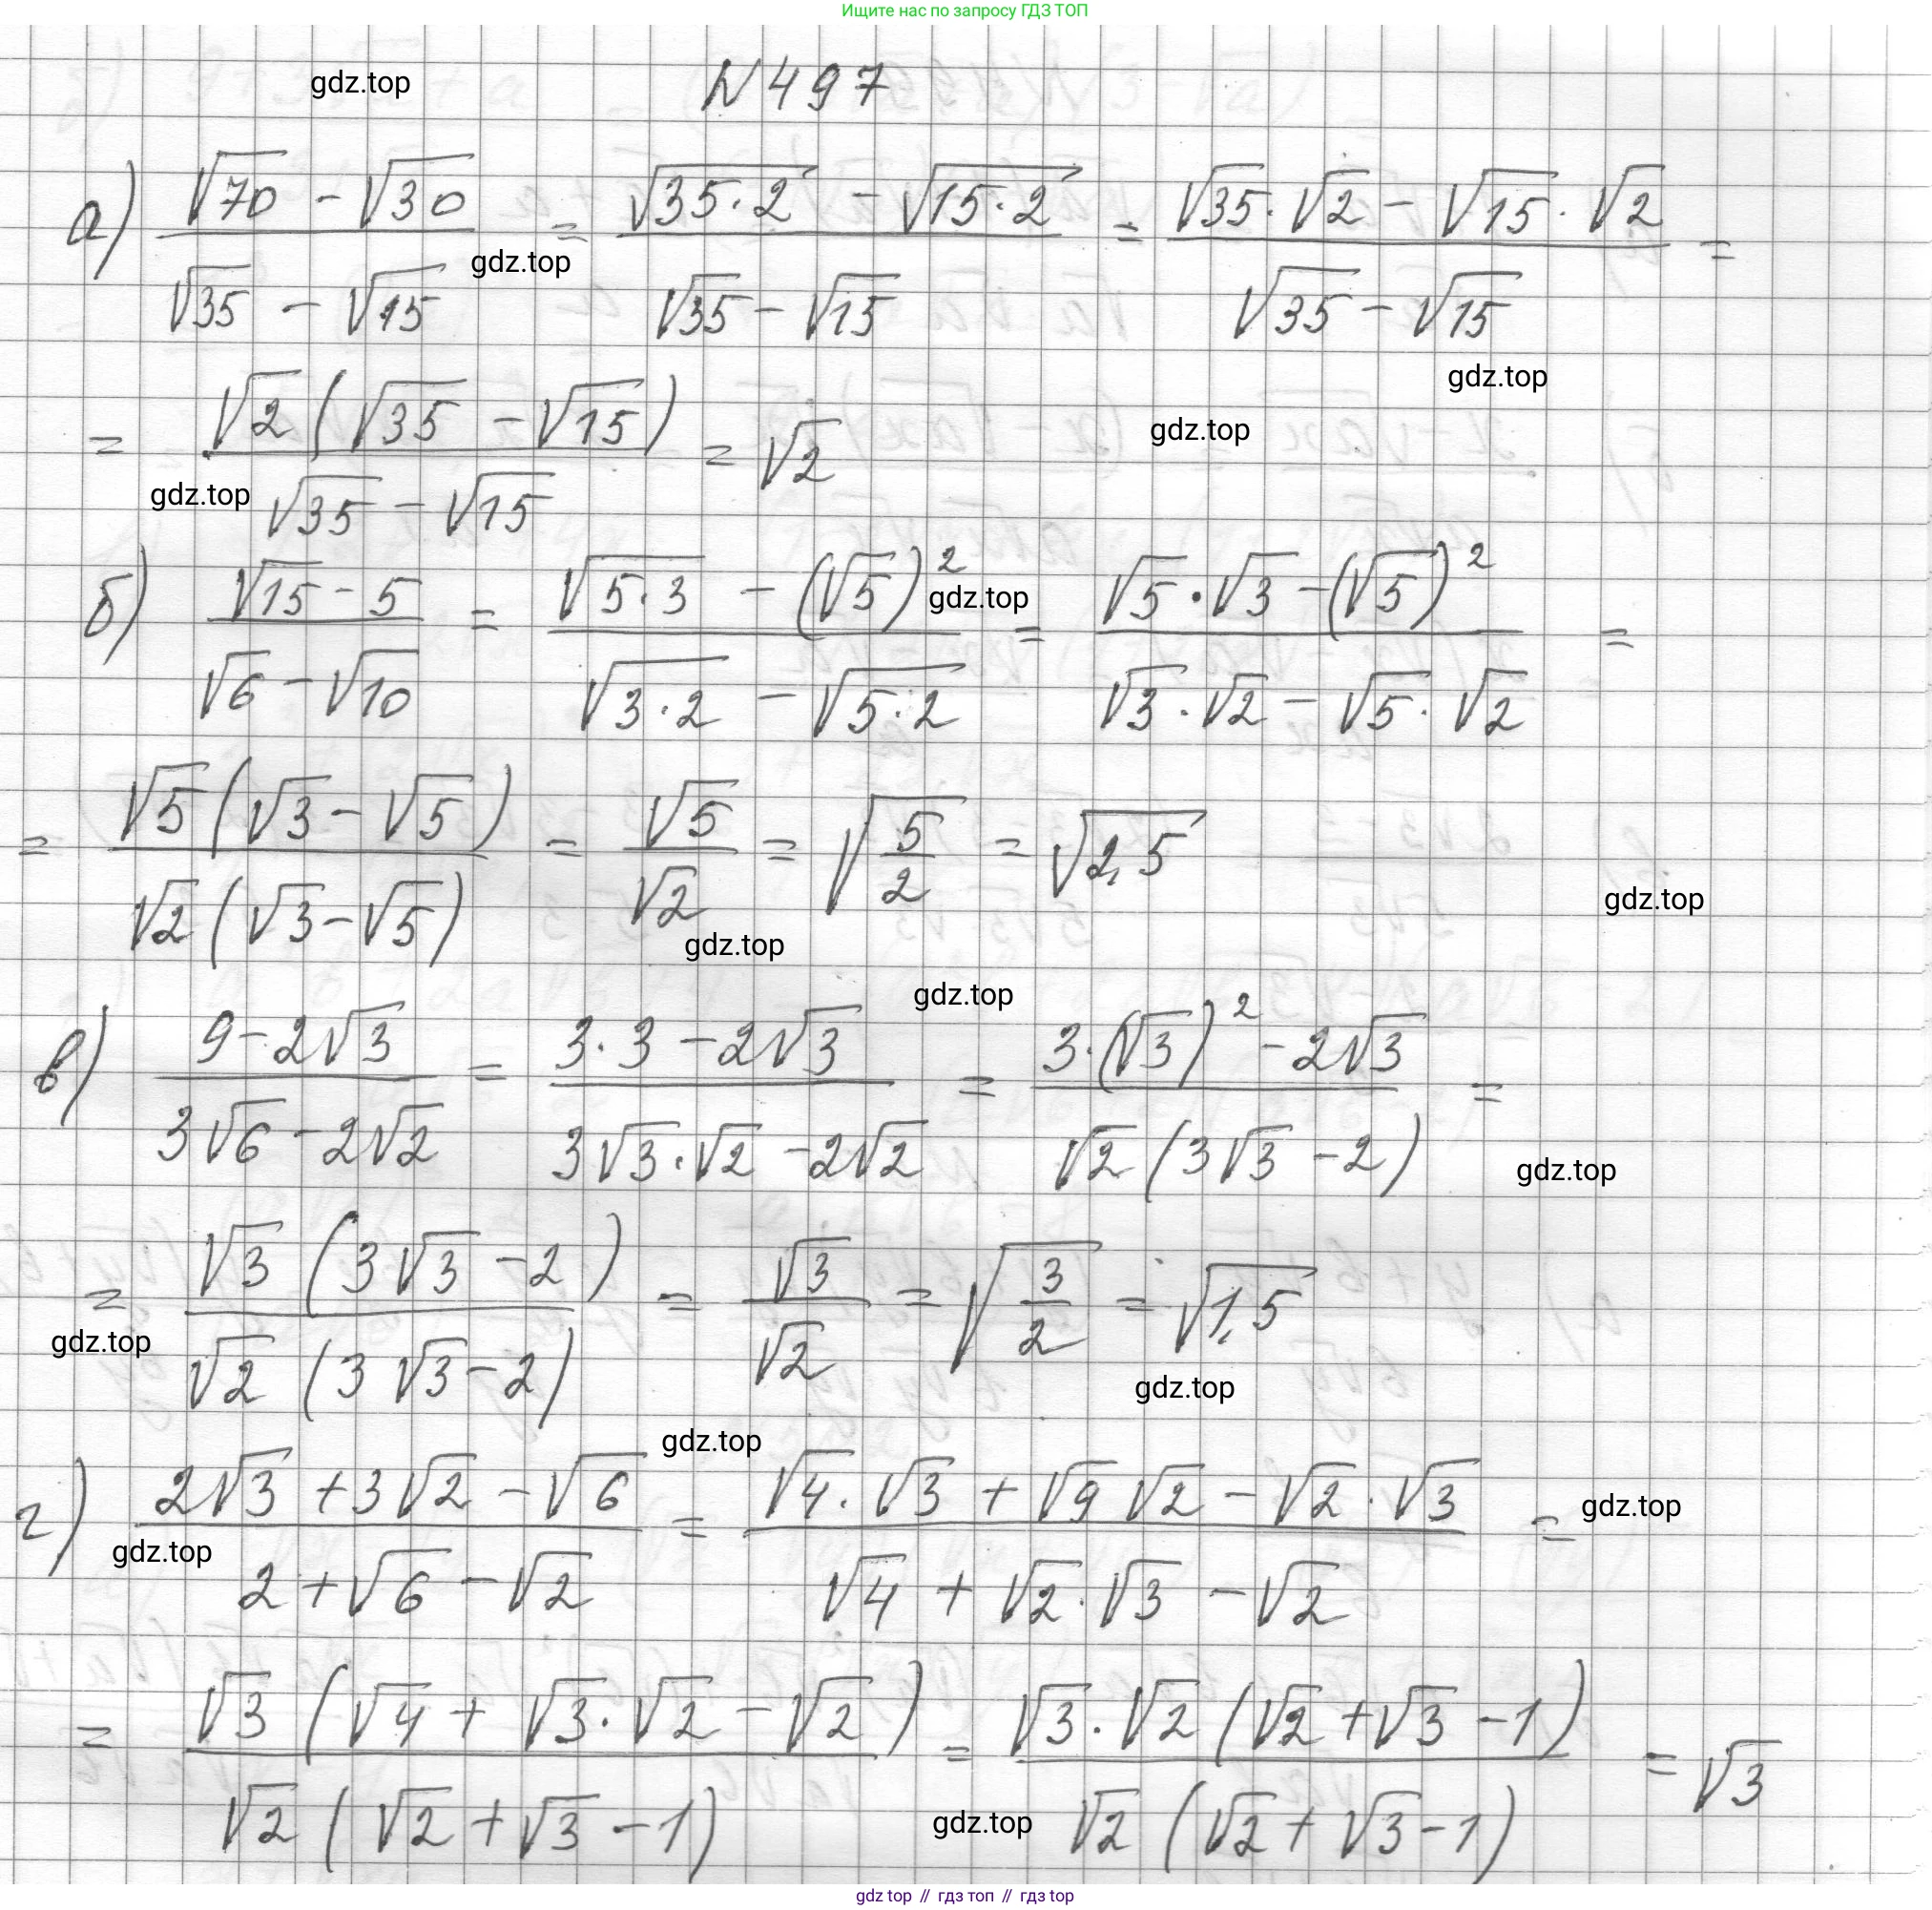 Ищите нас по запросу ГДЗ ТОП
gdz.top
N 497
а) (√70 - √30)/(√35 - √15) = (√(35·2) - √(15·2))/(√35 - √15) = (√35·√2 - √15·√2)/(√35 - √15) =
gdz.top
gdz.top
= (√2(√35 - √15))/(√35 - √15) = √2
gdz.top
gdz.top
б) (√15 - 5)/(√6 - √10) = (√(5·3) - (√5)²)/(√(3·2) - √(5·2)) = (√5·√3 - (√5)²)/(√3·√2 - √5·√2) =
gdz.top
= (√5(√3 - √5))/(√2(√3 - √5)) = √5/√2 = √(5/2) = √2,5
gdz.top
gdz.top
gdz.top
в) (9 - 2√3)/(3√6 - 2√2) = (3·3 - 2√3)/(3√3·√2 - 2√2) = (3·(√3)² - 2√3)/(√2(3√3 - 2)) =
gdz.top
= (√3(3√3 - 2))/(√2(3√3 - 2)) = √3/√2 = √(3/2) = √1,5
gdz.top
gdz.top
gdz.top
г) (2√3 + 3√2 - √6)/(2 + √6 - √2) = (√4·√3 + √9√2 - √2·√3)/(√4 + √2·√3 - √2) =
gdz.top
gdz.top
= (√3(√4 + √3·√2 - √2))/(√2(√2 + √3 - 1)) = (√3·√2(√2 + √3 - 1))/(√2(√2 + √3 - 1)) = √3
gdz.top
gdz top // гдз топ // гдз top